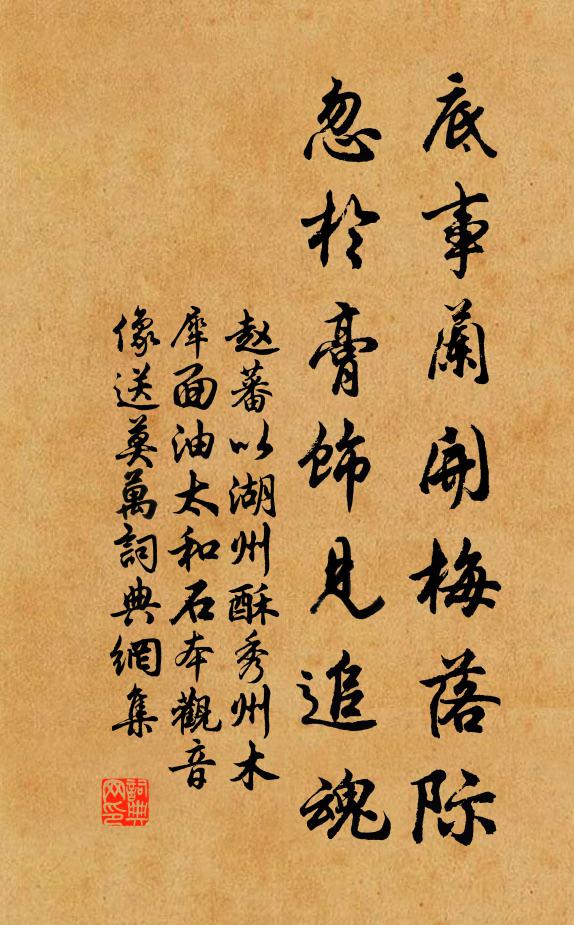 底事蘭開梅落际
忽於膏飾見追魂
赵蕃以湖州酥秀州木
犀面油太和石本觀音
像送莫萬詞典網集
詞典网印